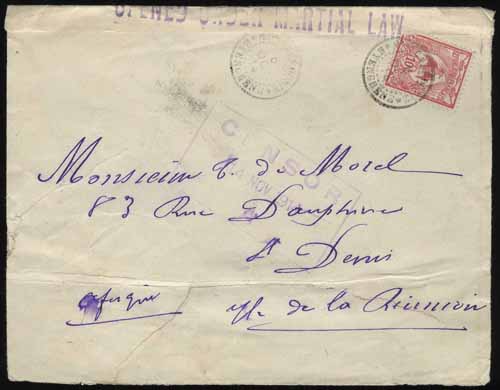 OPENED UNDER MARTIAL LAW
CENSOR
4 NOV 191
Monsieur T. de Morel
83 Rue Dauphine
St Denis
Afrique
Ile de la Réunion